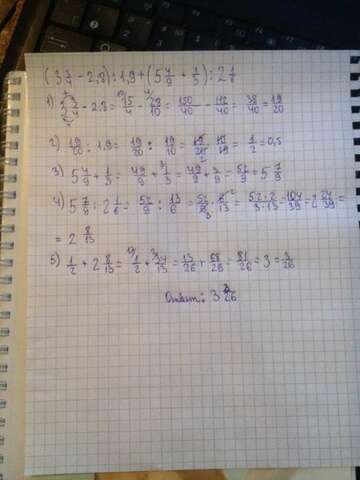 (3 3/4 - 2,8) : 1,9 + (5 4/9 + 1/3) : 2 1/6
1) 3 3/4 - 2,8 = 15/4 - 28/10 = 150/40 - 112/40 = 38/40 = 19/20
2) 19/20 : 1,9 = 19/20 : 19/10 = 19/20 · 10/19 = 1/2 = 0,5
3) 5 4/9 + 1/3 = 49/9 + 1/3 = 49/9 + 3/9 = 52/9 = 5 7/9
4) 5 7/9 : 2 1/6 = 52/9 : 13/6 = 52/9 · 6/13 = 52·2/3·13 = 104/39 = 2 26/39 =
= 2 8/13
5) 1/2 + 2 8/13 = 1/2 + 34/13 = 13/26 + 68/26 = 81/26 = 3 = 3/26
Ответ: 3 3/26